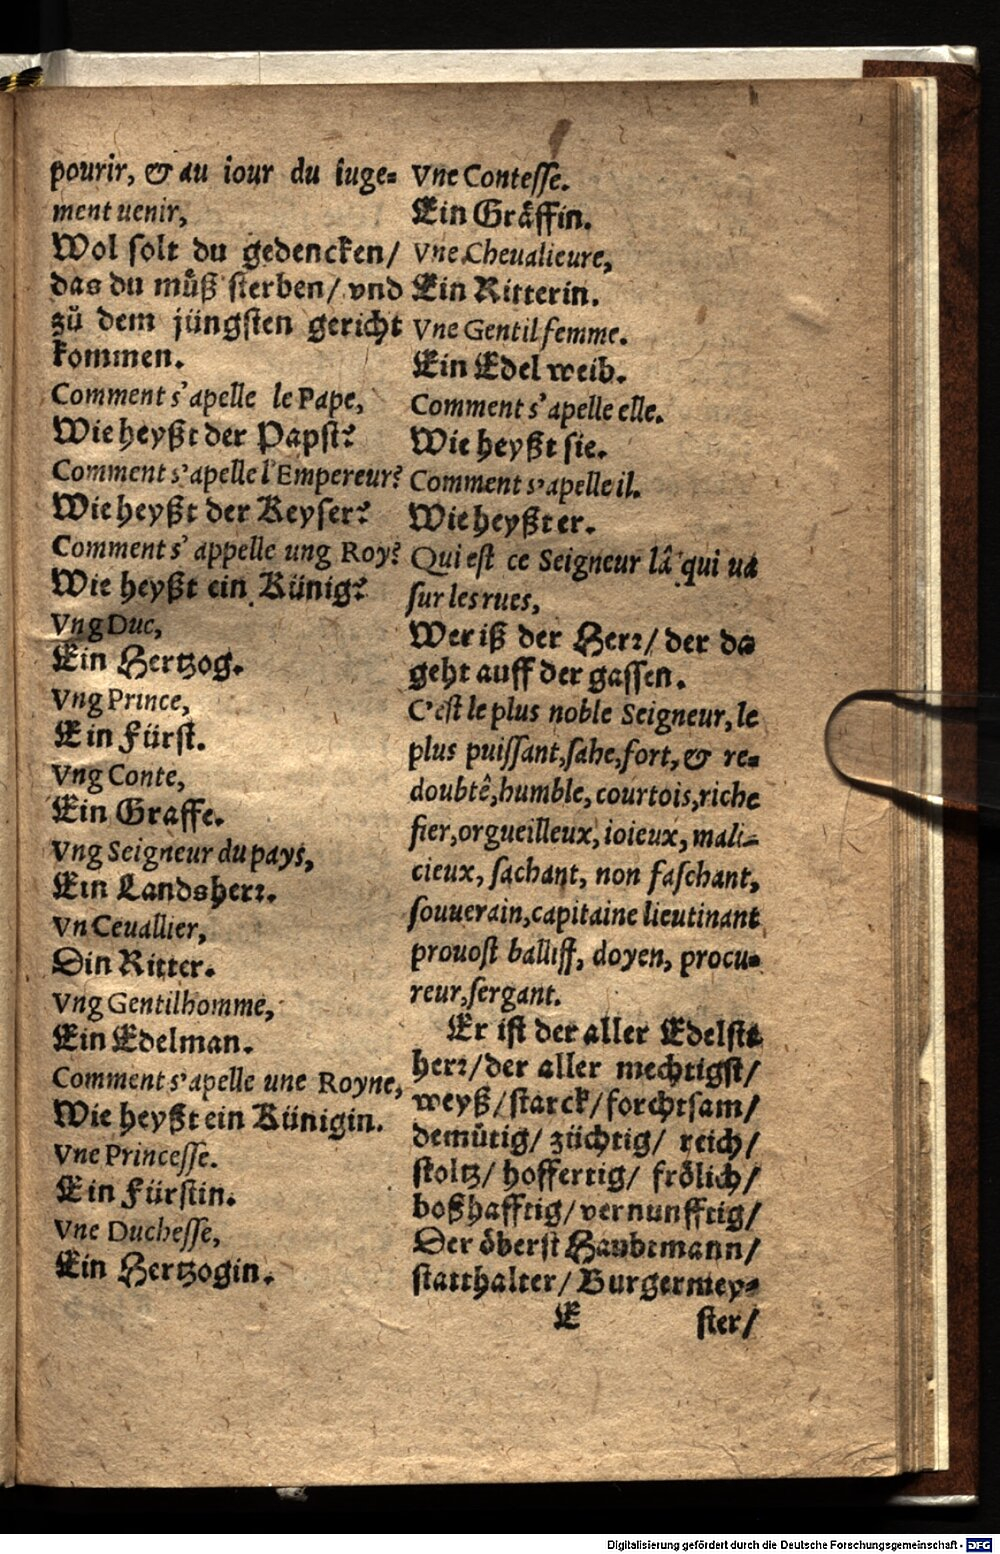 pourir, & au iour du iuge=
ment uenir,
Wol solt du gedencken/
das du můß sterben/ vnd
zů dem jüngsten gericht
kommen.
Comment s'apelle le Pape,
Wie heyßt der Papst?
Comment s'apelle l'Empereur?
Wie heyßt der Keyser?
Comment s'appelle ung Roy?
Wie heyßt ein Künig?
Vng Duc,
Ein Hertzog.
Vng Prince,
Ein Fürst.
Vng Conte,
Ein Graffe.
Vng Seigneur du pays,
Ein Landsherr.
Vn Ceuallier,
Din Ritter.
Vng Gentilhomme,
Ein Edelman.
Comment s'apelle une Royne,
Wie heyßt ein Künigin.
Vne Princesse.
Ein Fürstin.
Vne Duchesse,
Ein Hertzogin.
Vne Contesse.
Ein Gräffin.
Vne Cheualieure,
Ein Ritterin.
Vne Gentil femme.
Ein Edel weib.
Comment s'apelle elle.
Wie heyßt sie.
Comment s'apelle il.
Wie heyßt er.
Qui est ce Seigneur lâ qui ua
sur les rues,
Wer iß der Herr/ der da
geht auff der gassen.
C'est le plus noble Seigneur, le
plus puissant, sahe, fort, & re=
doubtê, humble, courtois, riche
fier, orgueilleux, ioieux, mali=
cieux, sachant, non faschant,
souuerain, capitaine lieutinant
prouost balliff, doyen, procu=
reur, sergant.
Er ist der aller Edelste
herr/ der aller mechtigst/
weyß/ starck/ forchtsam/
demütig/ züchtig/ reich/
stoltz/ hoffertig/ frölich/
boßhafftig/ vernunfftig/
Der öberst Haubtmann/
statthalter/ Burgermey=
E ster/
Digitalisierung gefördert durch die Deutsche Forschungsgemeinschaft - DFG